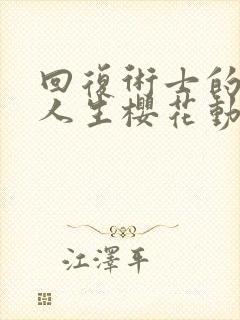 回復術士的
人生櫻花動
江澤平